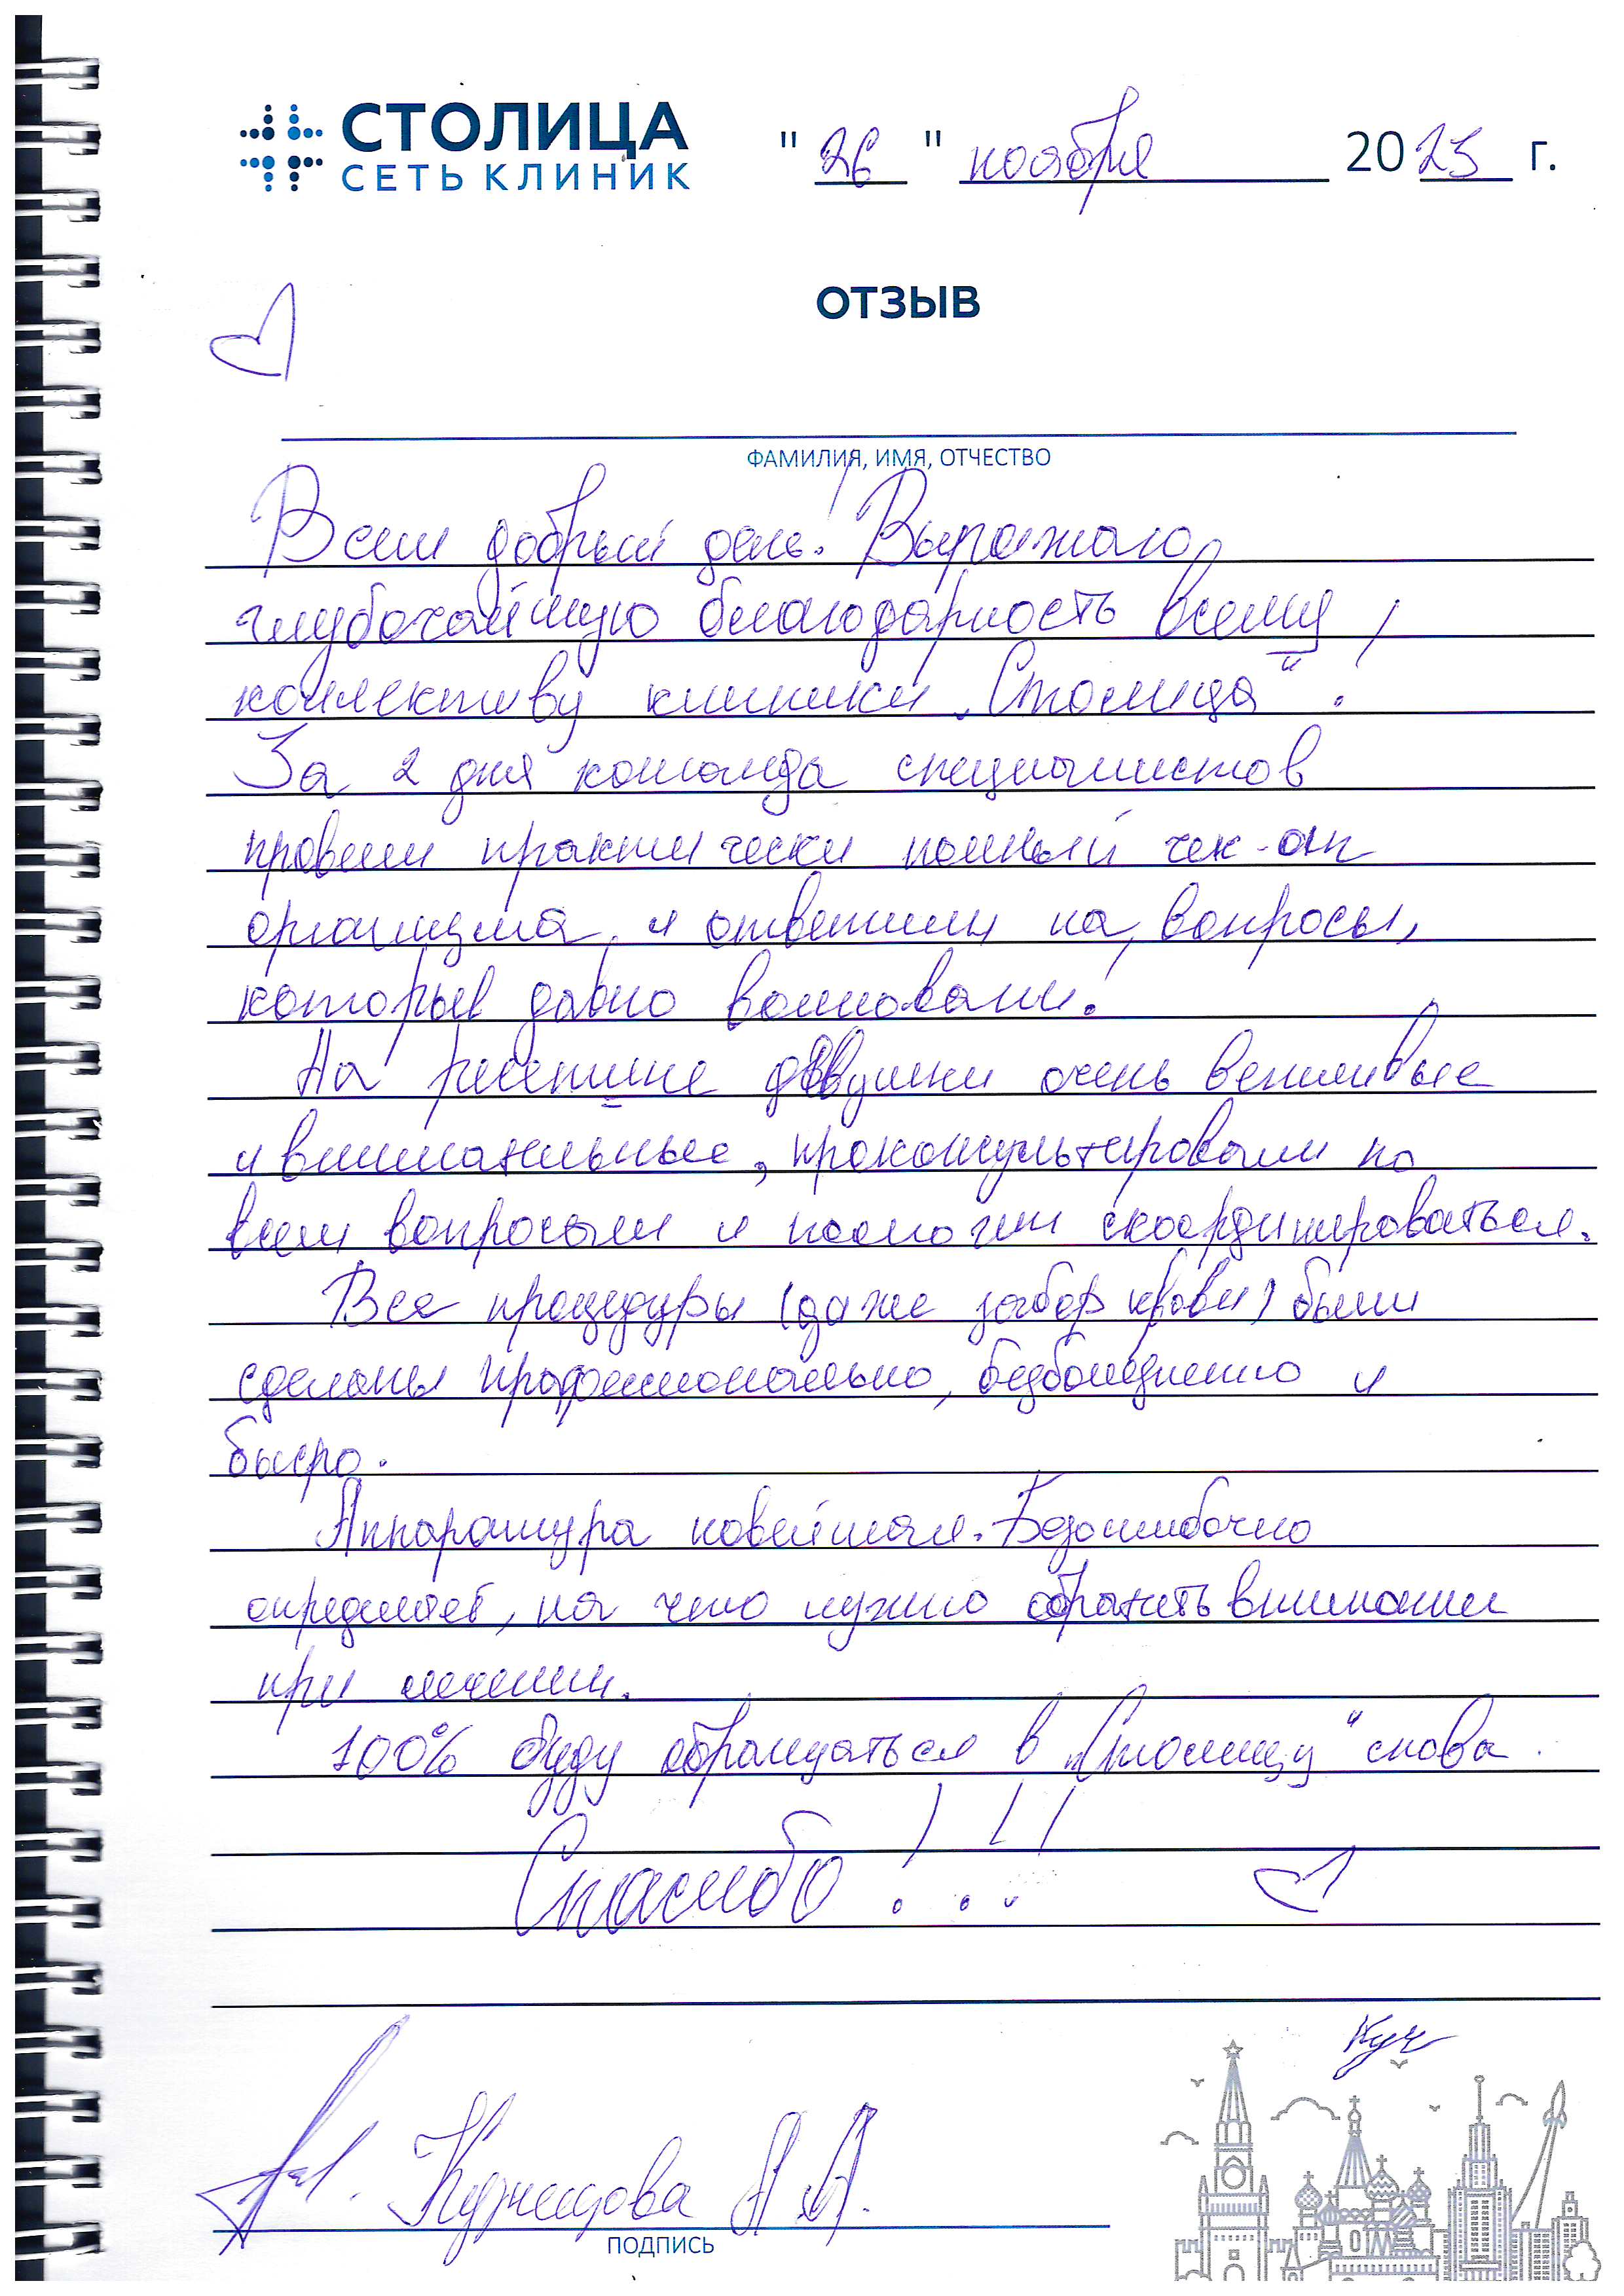 СТОЛИЦА
СЕТЬ КЛИНИК
" 26 " ноября 2025 г.
ОТЗЫВ
ФАМИЛИЯ, ИМЯ, ОТЧЕСТВО
Всем добрый день! Выражаю
глубочайшую благодарность всему
коллективу клиники „Столица“!
За 2 дня команда специалистов
провели практически полный чек-ап
организма и ответили на вопросы,
которые давно волновали.
На ресепшне девушки очень вежливые
и внимательные, проконсультировали по
всем вопросам и помогли скоординироваться.
Все процедуры (даже забор крови) были
сделаны профессионально, безболезненно и
быстро.
Аппаратура новейшая. Безошибочно
определяет, на что нужно обратить внимание
при лечении.
100% буду обращаться в „Столицу“ снова.
Спасибо!!!
Куч
Кузнецова А А.
ПОДПИСЬ